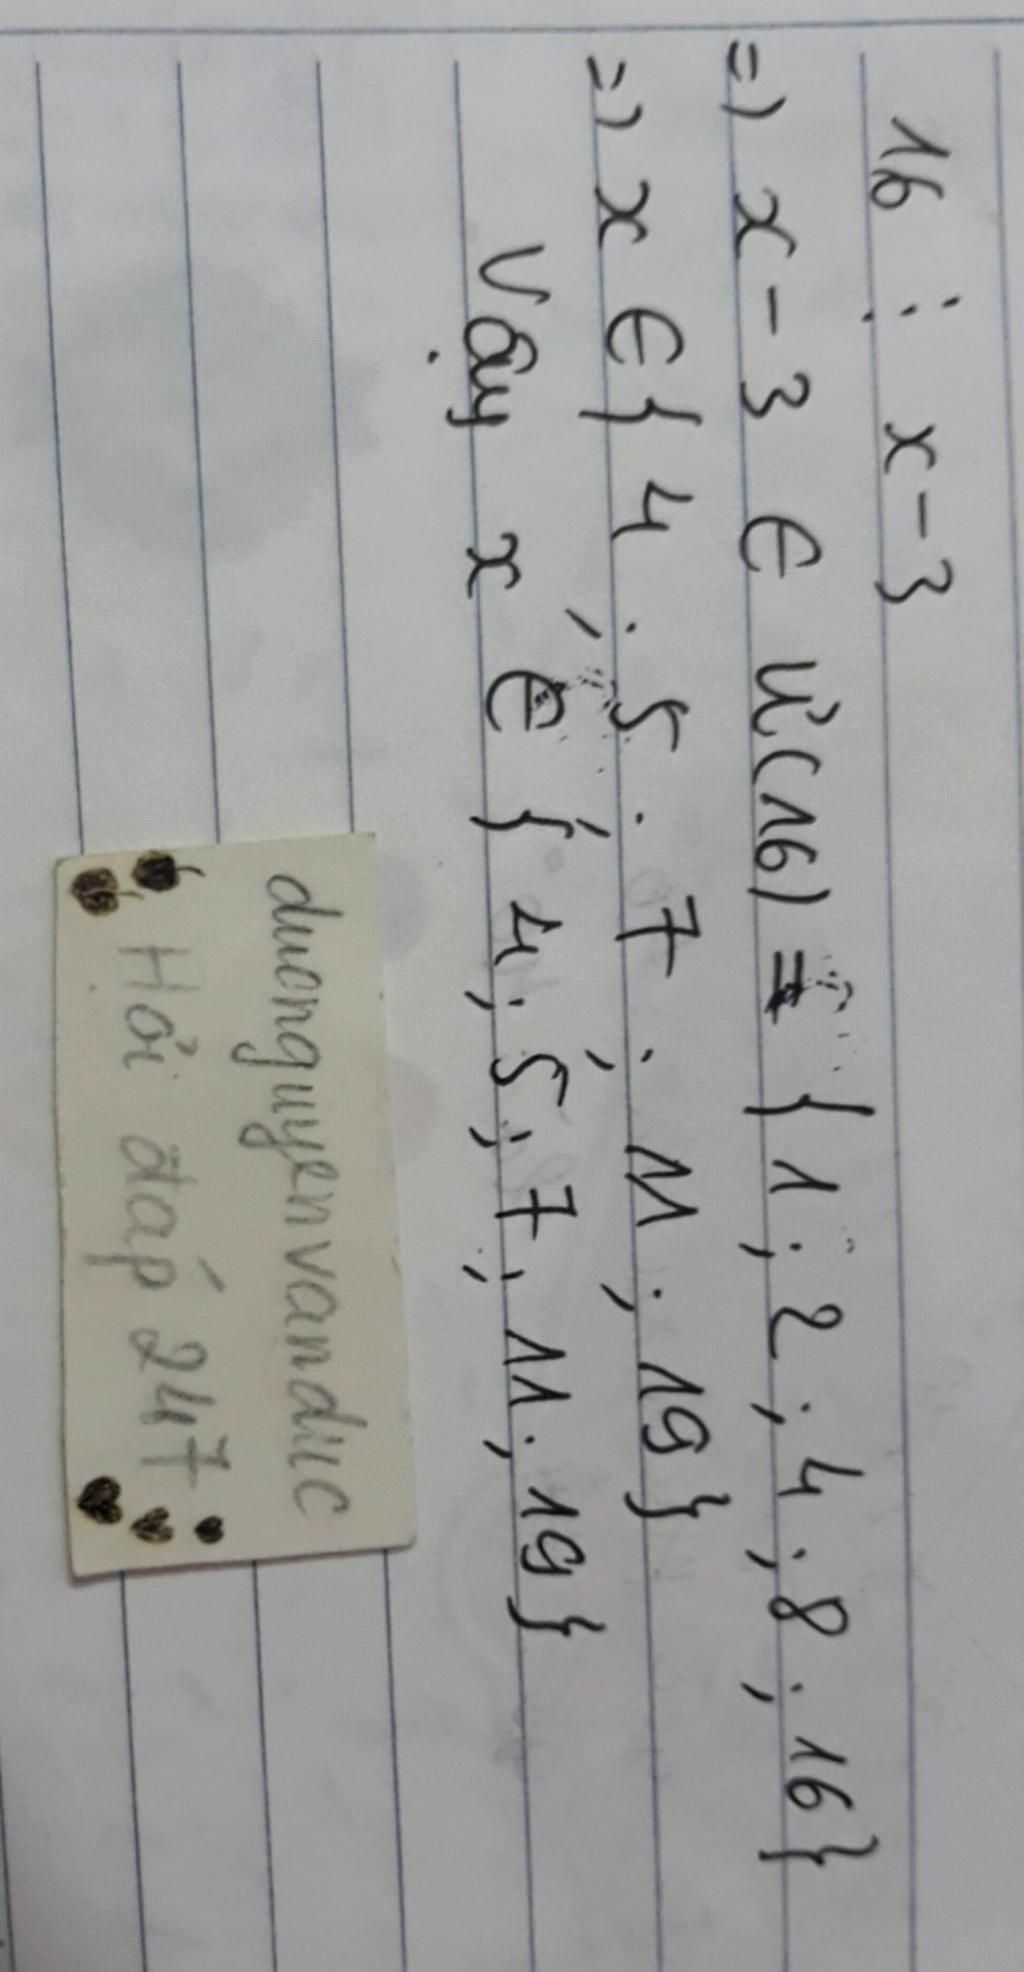 16 ⋮ x-3
=) x-3 ∈ Ư(16) = { 1 ; 2 ; 4 ; 8 ; 16}
=) x ∈ { 4 ; 5 ; 7 ; 11 ; 19}
Vậy x ∈ { 4 ; 5 ; 7 ; 11 ; 19}
duonguyenvanduc
Hỏi đáp 247